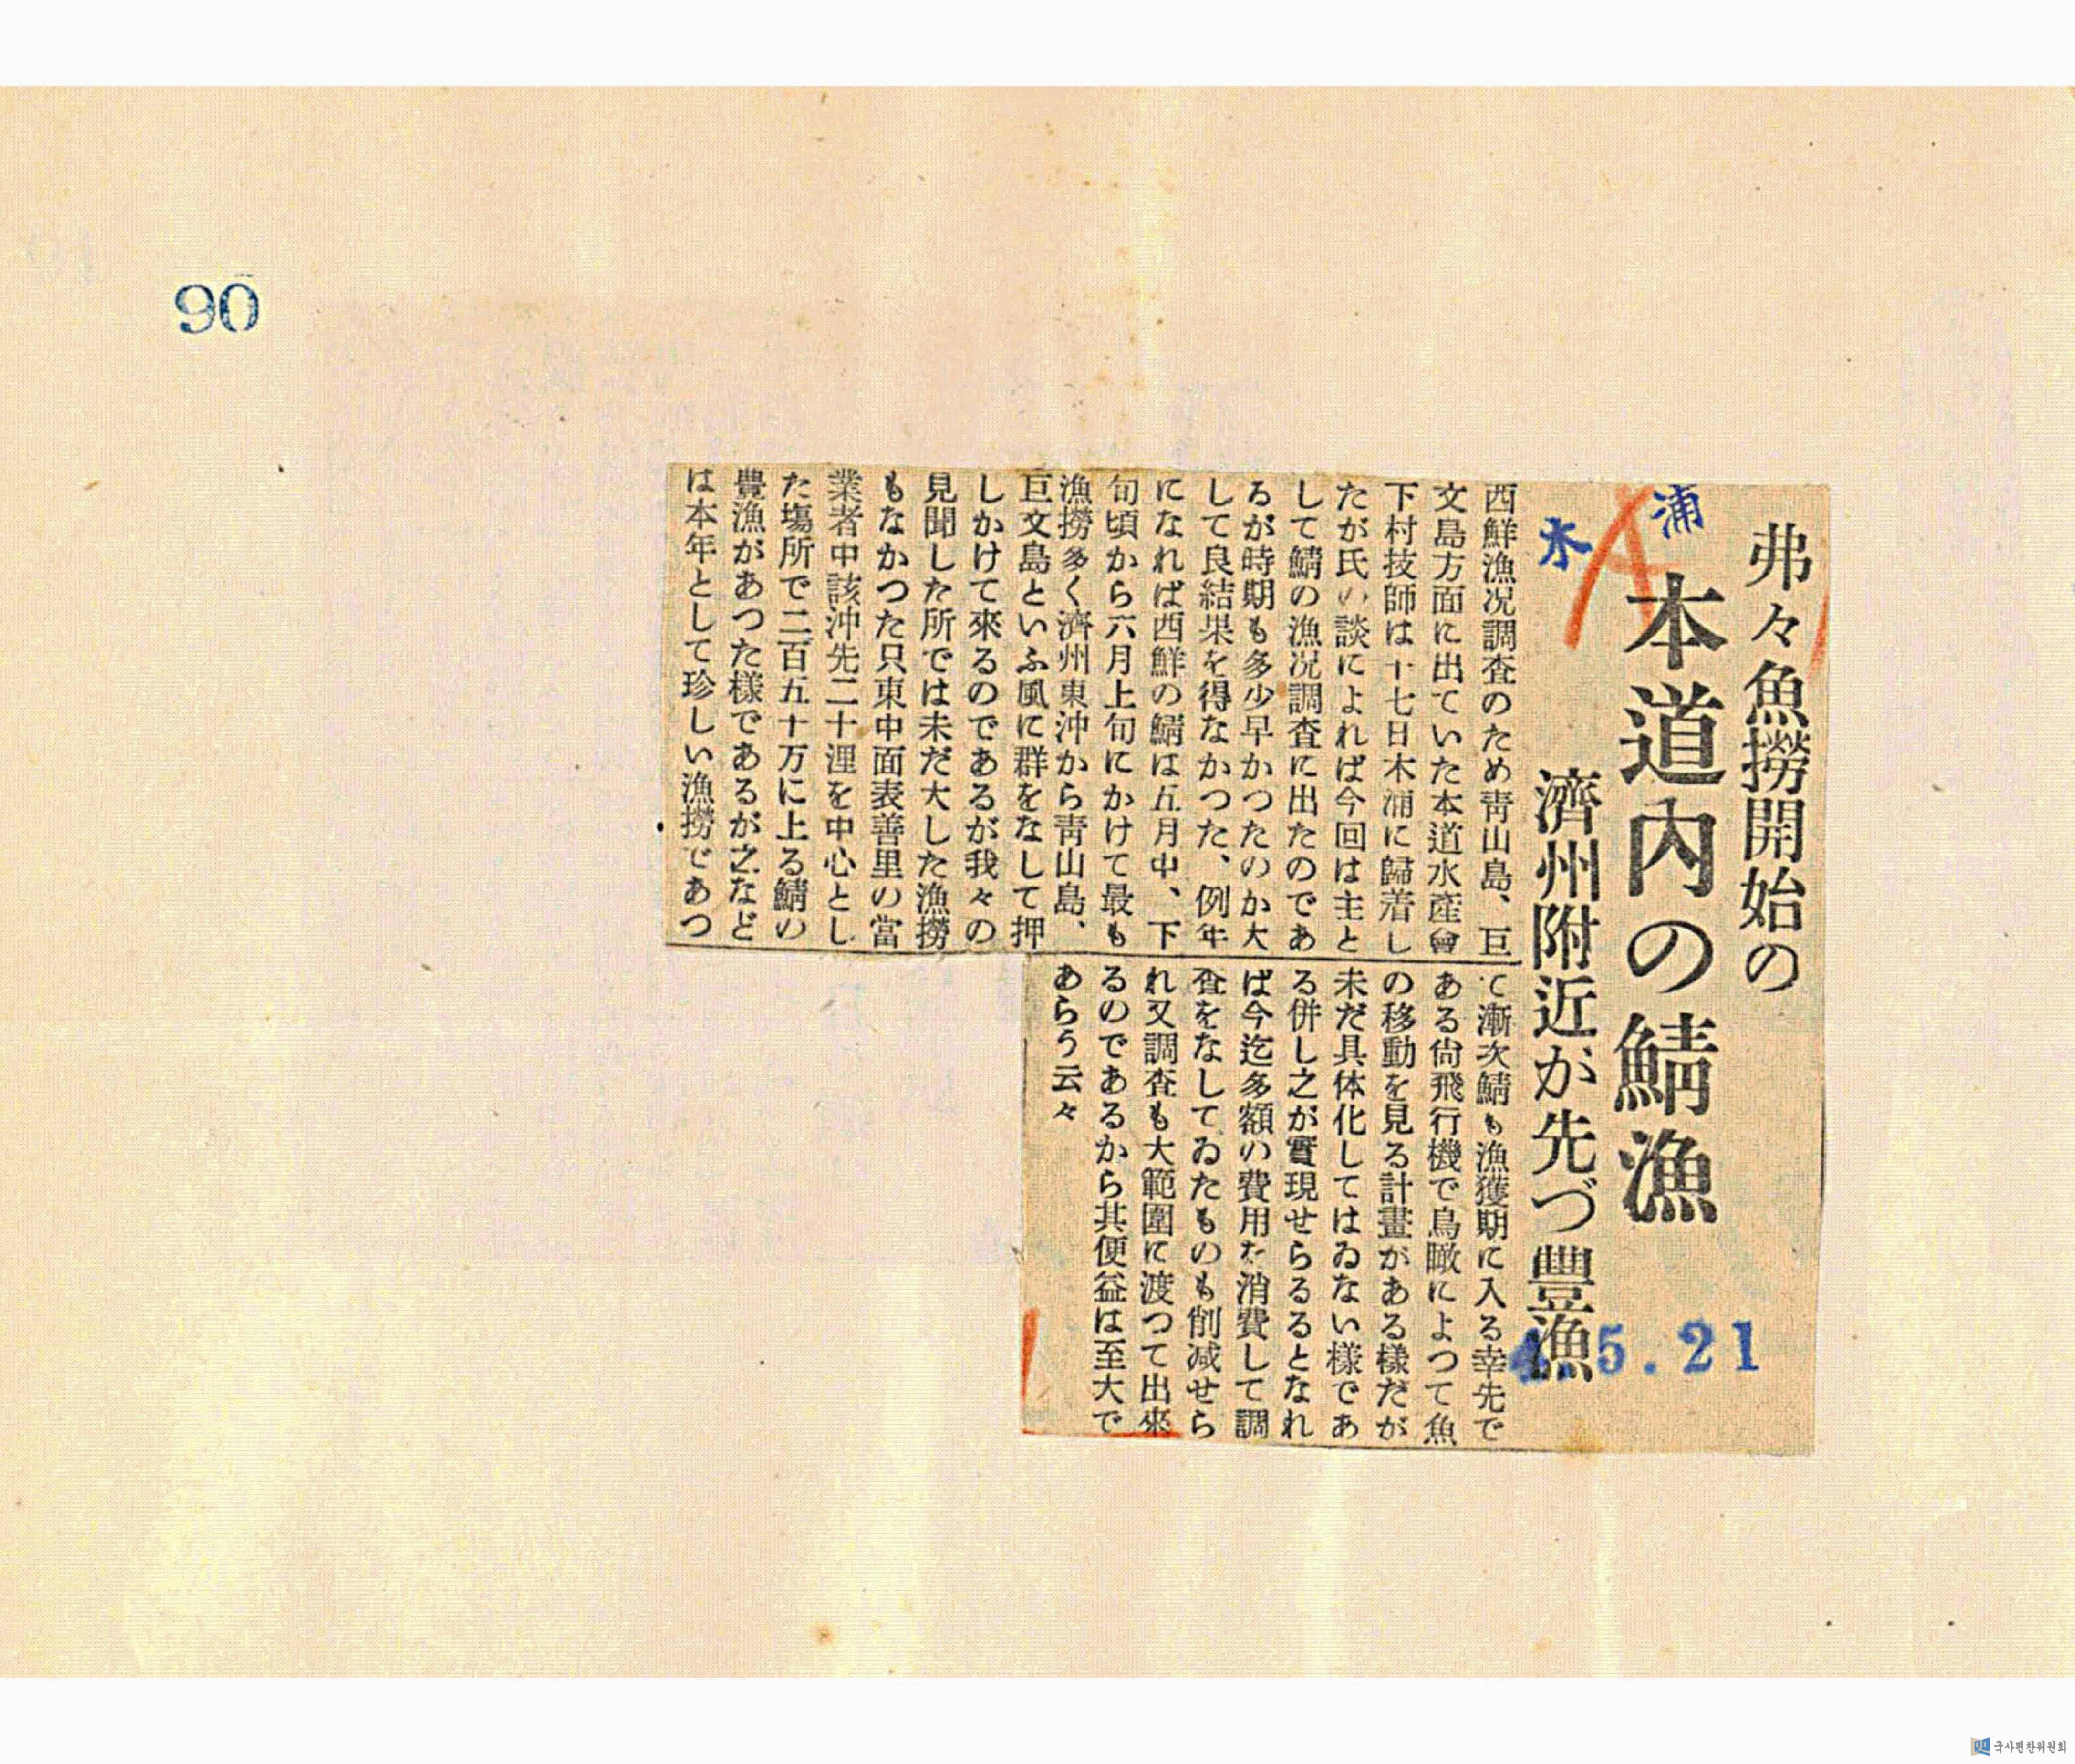 90
浦
水
A
弗々魚撈開始の
本道内の鯖漁
濟州附近が先づ豐漁
4.5.21
西鮮漁況調査のため靑山島、巨
文島方面に出ていた本道水産會
下村技師は十七日木浦に歸着し
たが氏の談によれば今回は主と
して鯖の漁況調査に出たのであ
るが時期も多少早かつたのか大
して良結果を得なかつた、例年
になれば西鮮の鯖は五月中、下
旬頃から六月上旬にかけて最も
漁撈多く濟州東沖から靑山島、
巨文島といふ風に群をなして押
しかけて來るのであるが我々の
見聞した所では未だ大した漁撈
もなかつた只東中面表善里の當
業者中該沖先二十浬を中心とし
た塲所で二百五十万に上る鯖の
豊漁があつた樣であるが之など
は本年として珍しい漁撈であつ
て漸次鯖も漁獲期に入る幸先で
ある尙飛行機で鳥瞰によつて魚
の移動を見る計畫がある樣だが
未だ具体化してはゐない樣であ
る併し之が實現せらるるとなれ
ば今迄多額の費用を消費して調
査をなしてゐたものも削減せら
れ又調査も大範圍に渡つて出來
るのであるから其便益は至大で
あらう云々
국사편찬위원회